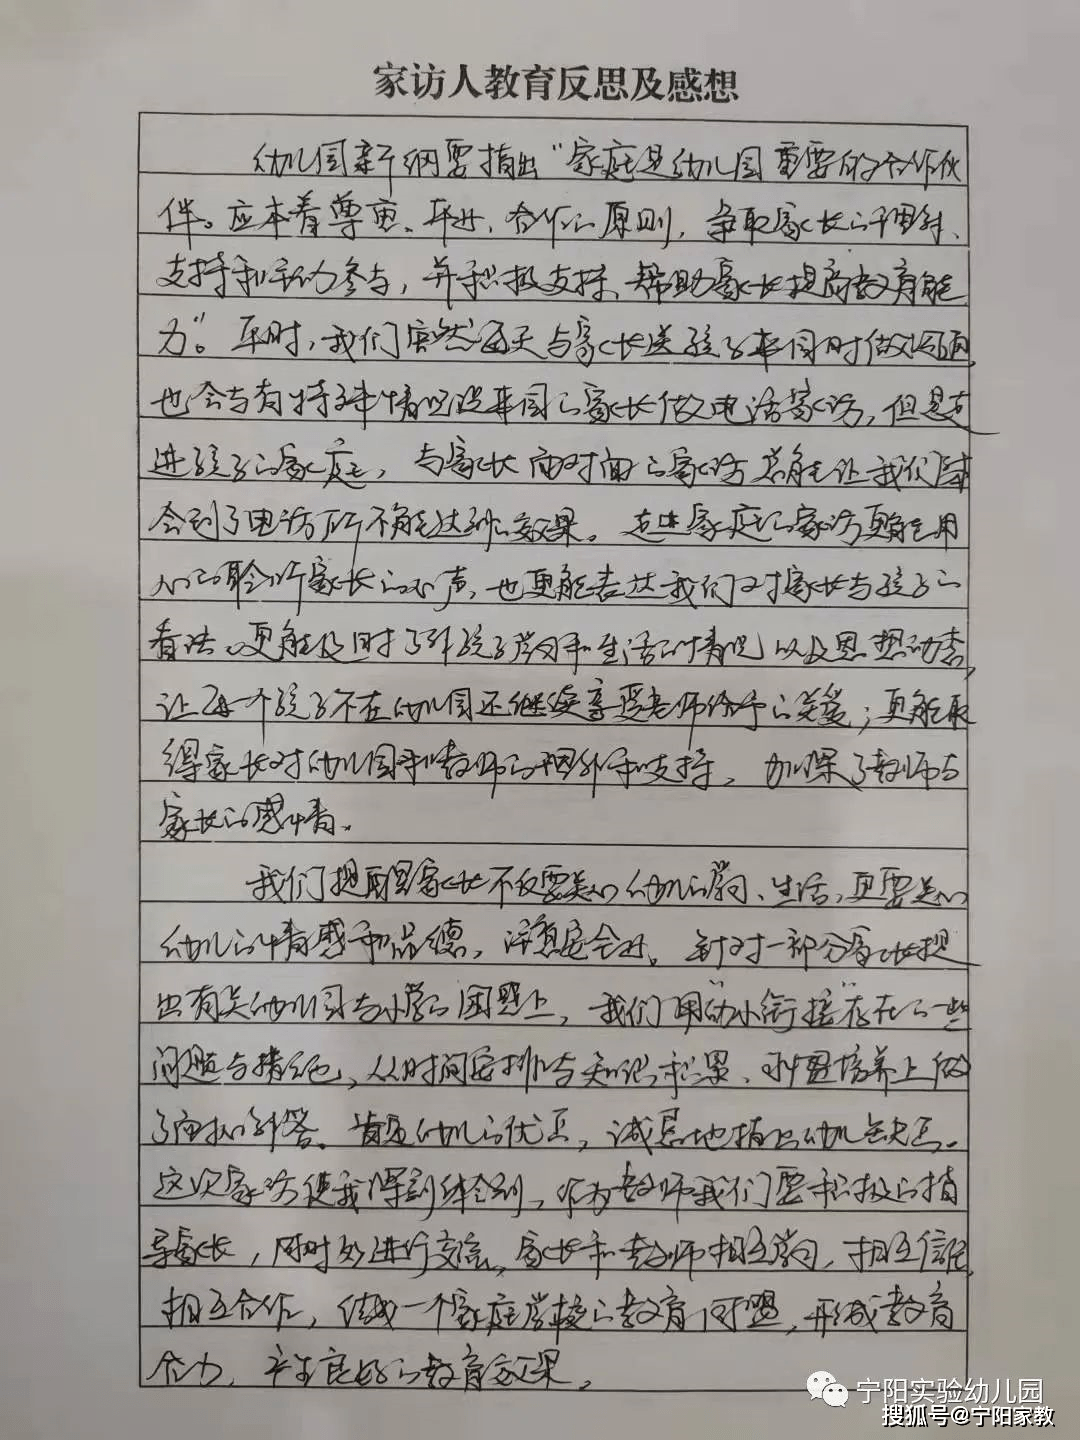 家访人教育反思及感想
幼儿园新纲要指出"家庭是幼儿园重要的合作伙
伴。应本着尊重、平等、合作的原则,争取家长的理解、
支持和主动参与,并积极支持、帮助家长提高教育能
力"。平时,我们虽然每天与家长送孩子来园时做沟通,
也会与有特殊情况没来园的家长做电话家访,但是走
进孩子的家庭,与家长面对面的家访总能让我们体
会到了电访所不能达到的效果。走进家庭的家访更能用
心的聆听家长的心声,也更能表达我们对家长与孩子的
看法。更能及时了解孩子学习和生活的情况以及思想动态,
让每个孩子不在幼儿园还继续享受老师给予的关爱;更能取
得家长对幼儿园和教师的理解和支持,加深了教师与
家长的感情。
我们提醒家长不仅要关心幼儿的学习、生活,更要关心
幼儿的情感和品德,注意安全。针对一部分家长提
出有关幼儿园与小学的困惑上,我们用"幼小衔接"存在的一些
问题与情况,从时间安排与知识积累、习惯培养上做
了面对的解答。肯定幼儿的优点,诚恳地指出幼儿缺点。
这次家访使我深刻体会到,作为教师我们要积极的指
导家长,同时多进行交流,家长和教师相互学习,相互信任,
相互合作,结成一个家庭学校的教育同盟,形成教育
合力,产生良好的教育效果。
宁阳实验幼儿园
搜狐号@宁阳家教